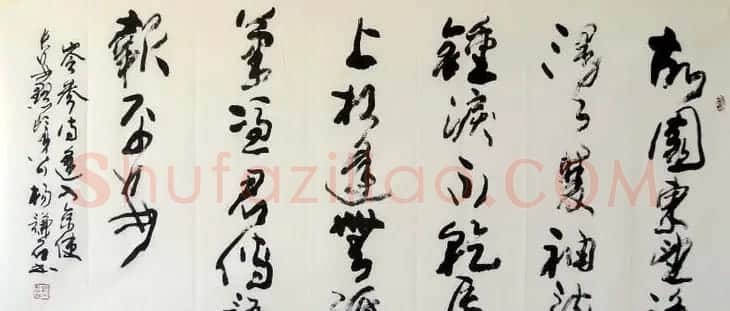 故園東望
漫々雙袖
鍾淚不乾
上相逢無
筆憑君傳
報平安
岑參詩逢入京使
Shufaziliao.COM